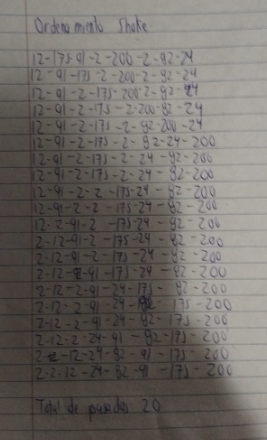 Ordenamiento Shake
12-175-91-2-200-2-92-24
12-91-175-2-200-2-92-24
12-91-2-175-200-2-92-24
12-91-2-175-2-200-92-24
12-91-2-175-2-92-200-24
12-91-2-175-2-92-24-200
12-91-2-175-2-24-92-200
12-91-2-175-2-24-92-200
12-91-2-2-175-24-92-200
12-91-2-2-175-24-92-200
12-2-91-2-175-24-92-200
2-12-91-2-175-24-92-200
2-12-91-2-175-24-92-200
2-12-2-91-175-24-92-200
2-12-2-91-24-175-92-200
2-12-2-91-24-92-175-200
2-12-2-91-24-92-175-200
2-12-2-24-91-92-175-200
2-2-12-24-92-91-175-200
2-2-12-24-92-91-175-200
Total de pasadas 20